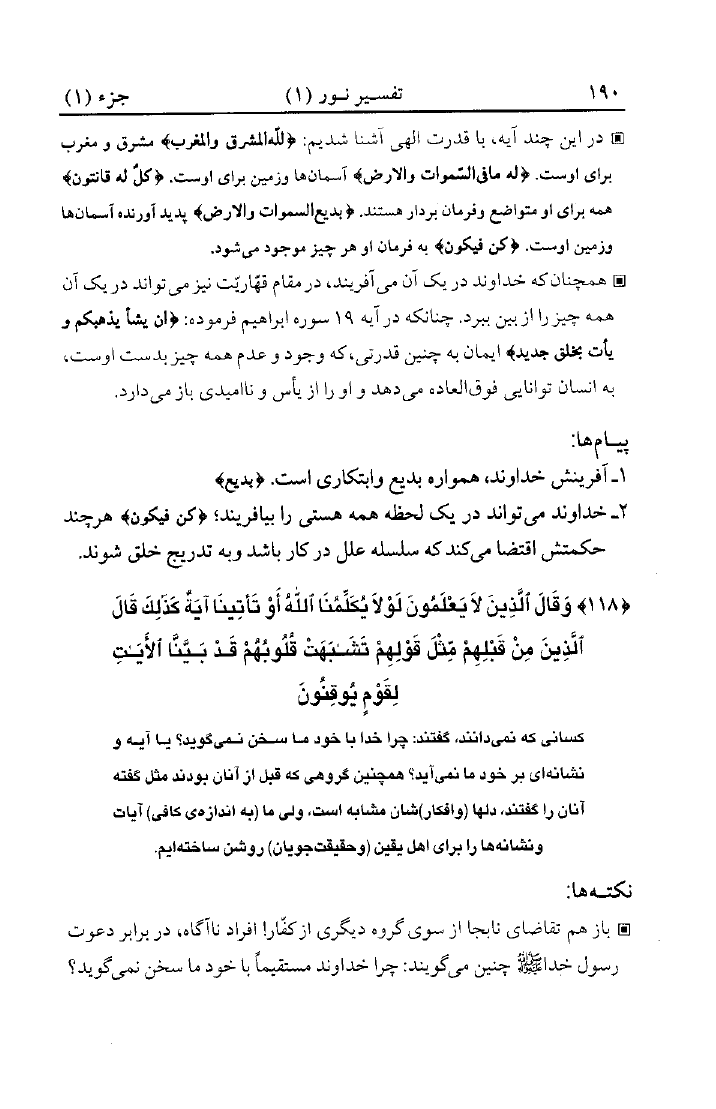 ۱۹۰ تفسیر نور (۱) جزء (۱)
▣ در این چند آیه، با قدرت الهی آشنا شدیم: ﴿لله المشرق والمغرب﴾ مشرق و مغرب
برای اوست. ﴿له مافی السّموات والارض﴾ آسمان‌ها وزمین برای اوست. ﴿کلٌ له قانتون﴾
همه برای او متواضع وفرمان بردار هستند. ﴿بدیع السموات والارض﴾ پدید آورنده آسمان‌ها
وزمین اوست. ﴿کن فیکون﴾ به فرمان او هر چیز موجود می‌شود.
▣ همچنان‌که خداوند در یک آن می‌آفریند، در مقام قهّاریّت نیز می‌تواند در یک آن
همه چیز را از بین ببرد. چنانکه در آیه ۱۹ سوره ابراهیم فرموده: ﴿ان یشأ یذهبکم و
یأت بخلق جدید﴾ ایمان به چنین قدرتی،که وجود و عدم همه چیز بدست اوست،
به انسان توانایی فوق‌العاده می‌دهد و او را از یأس و ناامیدی باز می‌دارد.
پیام‌ها:
۱ـ آفرینش خداوند، همواره بدیع وابتکاری است. ﴿بدیع﴾
۲ـ خداوند می‌تواند در یک لحظه همه هستی را بیافریند؛ ﴿کن فیکون﴾ هرچند
حکمتش اقتضا می‌کند که سلسله علل در کار باشد وبه تدریج خلق شوند.
﴿۱۱۸﴾ وَقَالَ ٱلَّذِینَ لاَ یَعْلَمُونَ لَوْلاَ یُکَلِّمُنَا ٱللَّهُ أَوْ تَأْتِینَا آیَةٌ کَذَٰلِكَ قَالَ
ٱلَّذِینَ مِنْ قَبْلِهِمْ مِّثْلَ قَوْلِهِمْ تَشَـٰبَهَتْ قُلُوبُهُمْ قَدْ بَیَّنَّا ٱلأَیَـٰتِ
لِقَوْمٍ یُوقِنُونَ
کسانی که نمی‌دانند، گفتند: چرا خدا با خود ما سخن نمی‌گوید؟ یا آیه و
نشانه‌ای بر خود ما نمی‌آید؟ همچنین گروهی که قبل از آنان بودند مثل گفته
آنان را گفتند، دلها (وافکار)شان مشابه است، ولی ما (به اندازه‌ی کافی) آیات
ونشانه‌ها را برای اهل یقین (وحقیقت‌جویان) روشن ساخته‌ایم.
نکته‌ها:
▣ باز هم تقاضای نابجا از سوی گروه دیگری از کفّار! افراد ناآگاه، در برابر دعوت
رسول خداﷺ چنین می‌گویند: چرا خداوند مستقیماً با خود ما سخن نمی‌گوید؟